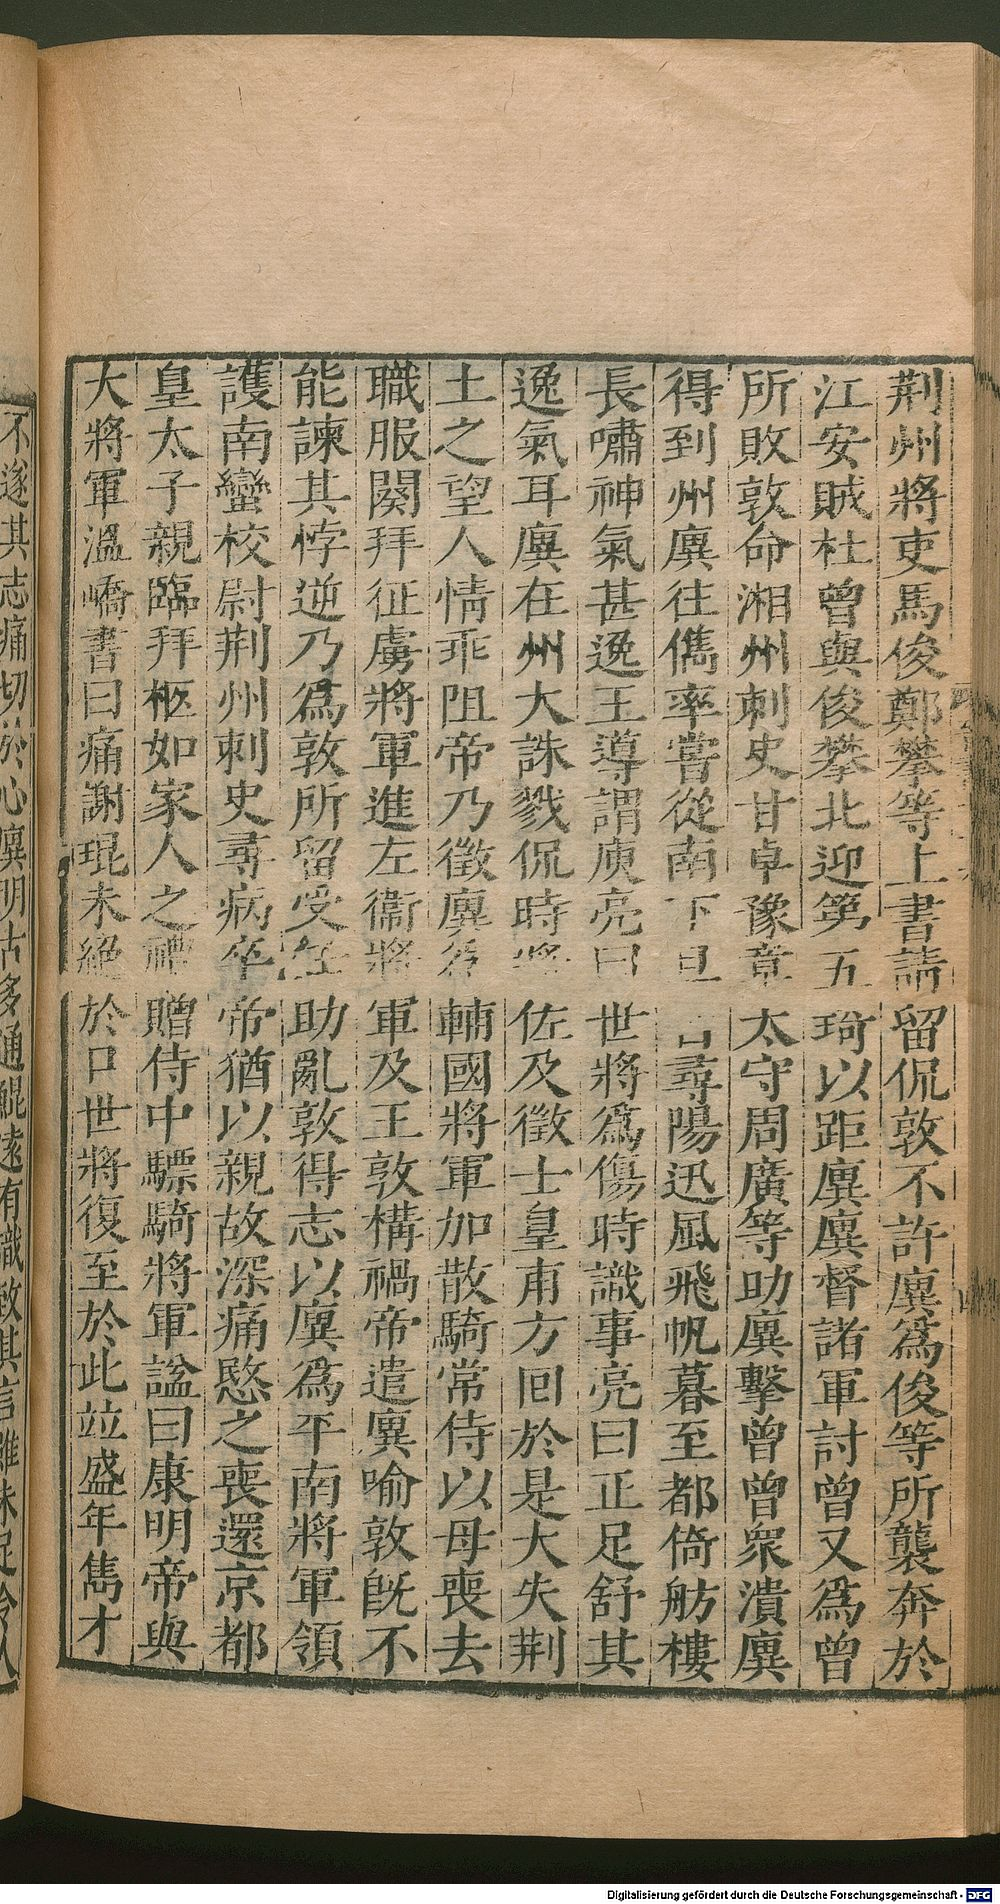 荆州將吏馬俊鄭攀等上書請留侃敦不許廙爲俊等所襲奔於
江安賊杜曾與俊攀北迎第五琦以距廙廙督諸軍討曾又爲曾
所敗敦命湘州刺史甘卓豫章太守周廣等助廙擊曾曾衆潰廙
得到州廙往儁率嘗從南下旦自尋陽迅風飛帆暮至都倚舫樓
長嘯神氣甚逸王導謂庾亮曰世將爲傷時識事亮曰正足舒其
逸氣耳廙在州大誅戮侃時將佐及徵士皇甫方回於是大失荆
土之望人情乖阻帝乃徵廙爲輔國將軍加散騎常侍以母喪去
職服闋拜征虜將軍進左衞將軍及王敦構禍帝遣廙喻敦旣不
能諫其悖逆乃爲敦所留受任助亂敦得志以廙爲平南將軍領
護南蠻校尉荆州刺史尋病卒帝猶以親故深痛愍之喪還京都
皇太子親臨拜柩如家人之禮贈侍中驃騎將軍諡曰康明帝與
大將軍溫嶠書曰痛謝琨未絕於口世將復至於此竝盛年雋才
不遂其志痛切於心廙明古多通鯤遠有識致其言雖未足令人
Digitalisierung gefördert durch die Deutsche Forschungsgemeinschaft - DFG